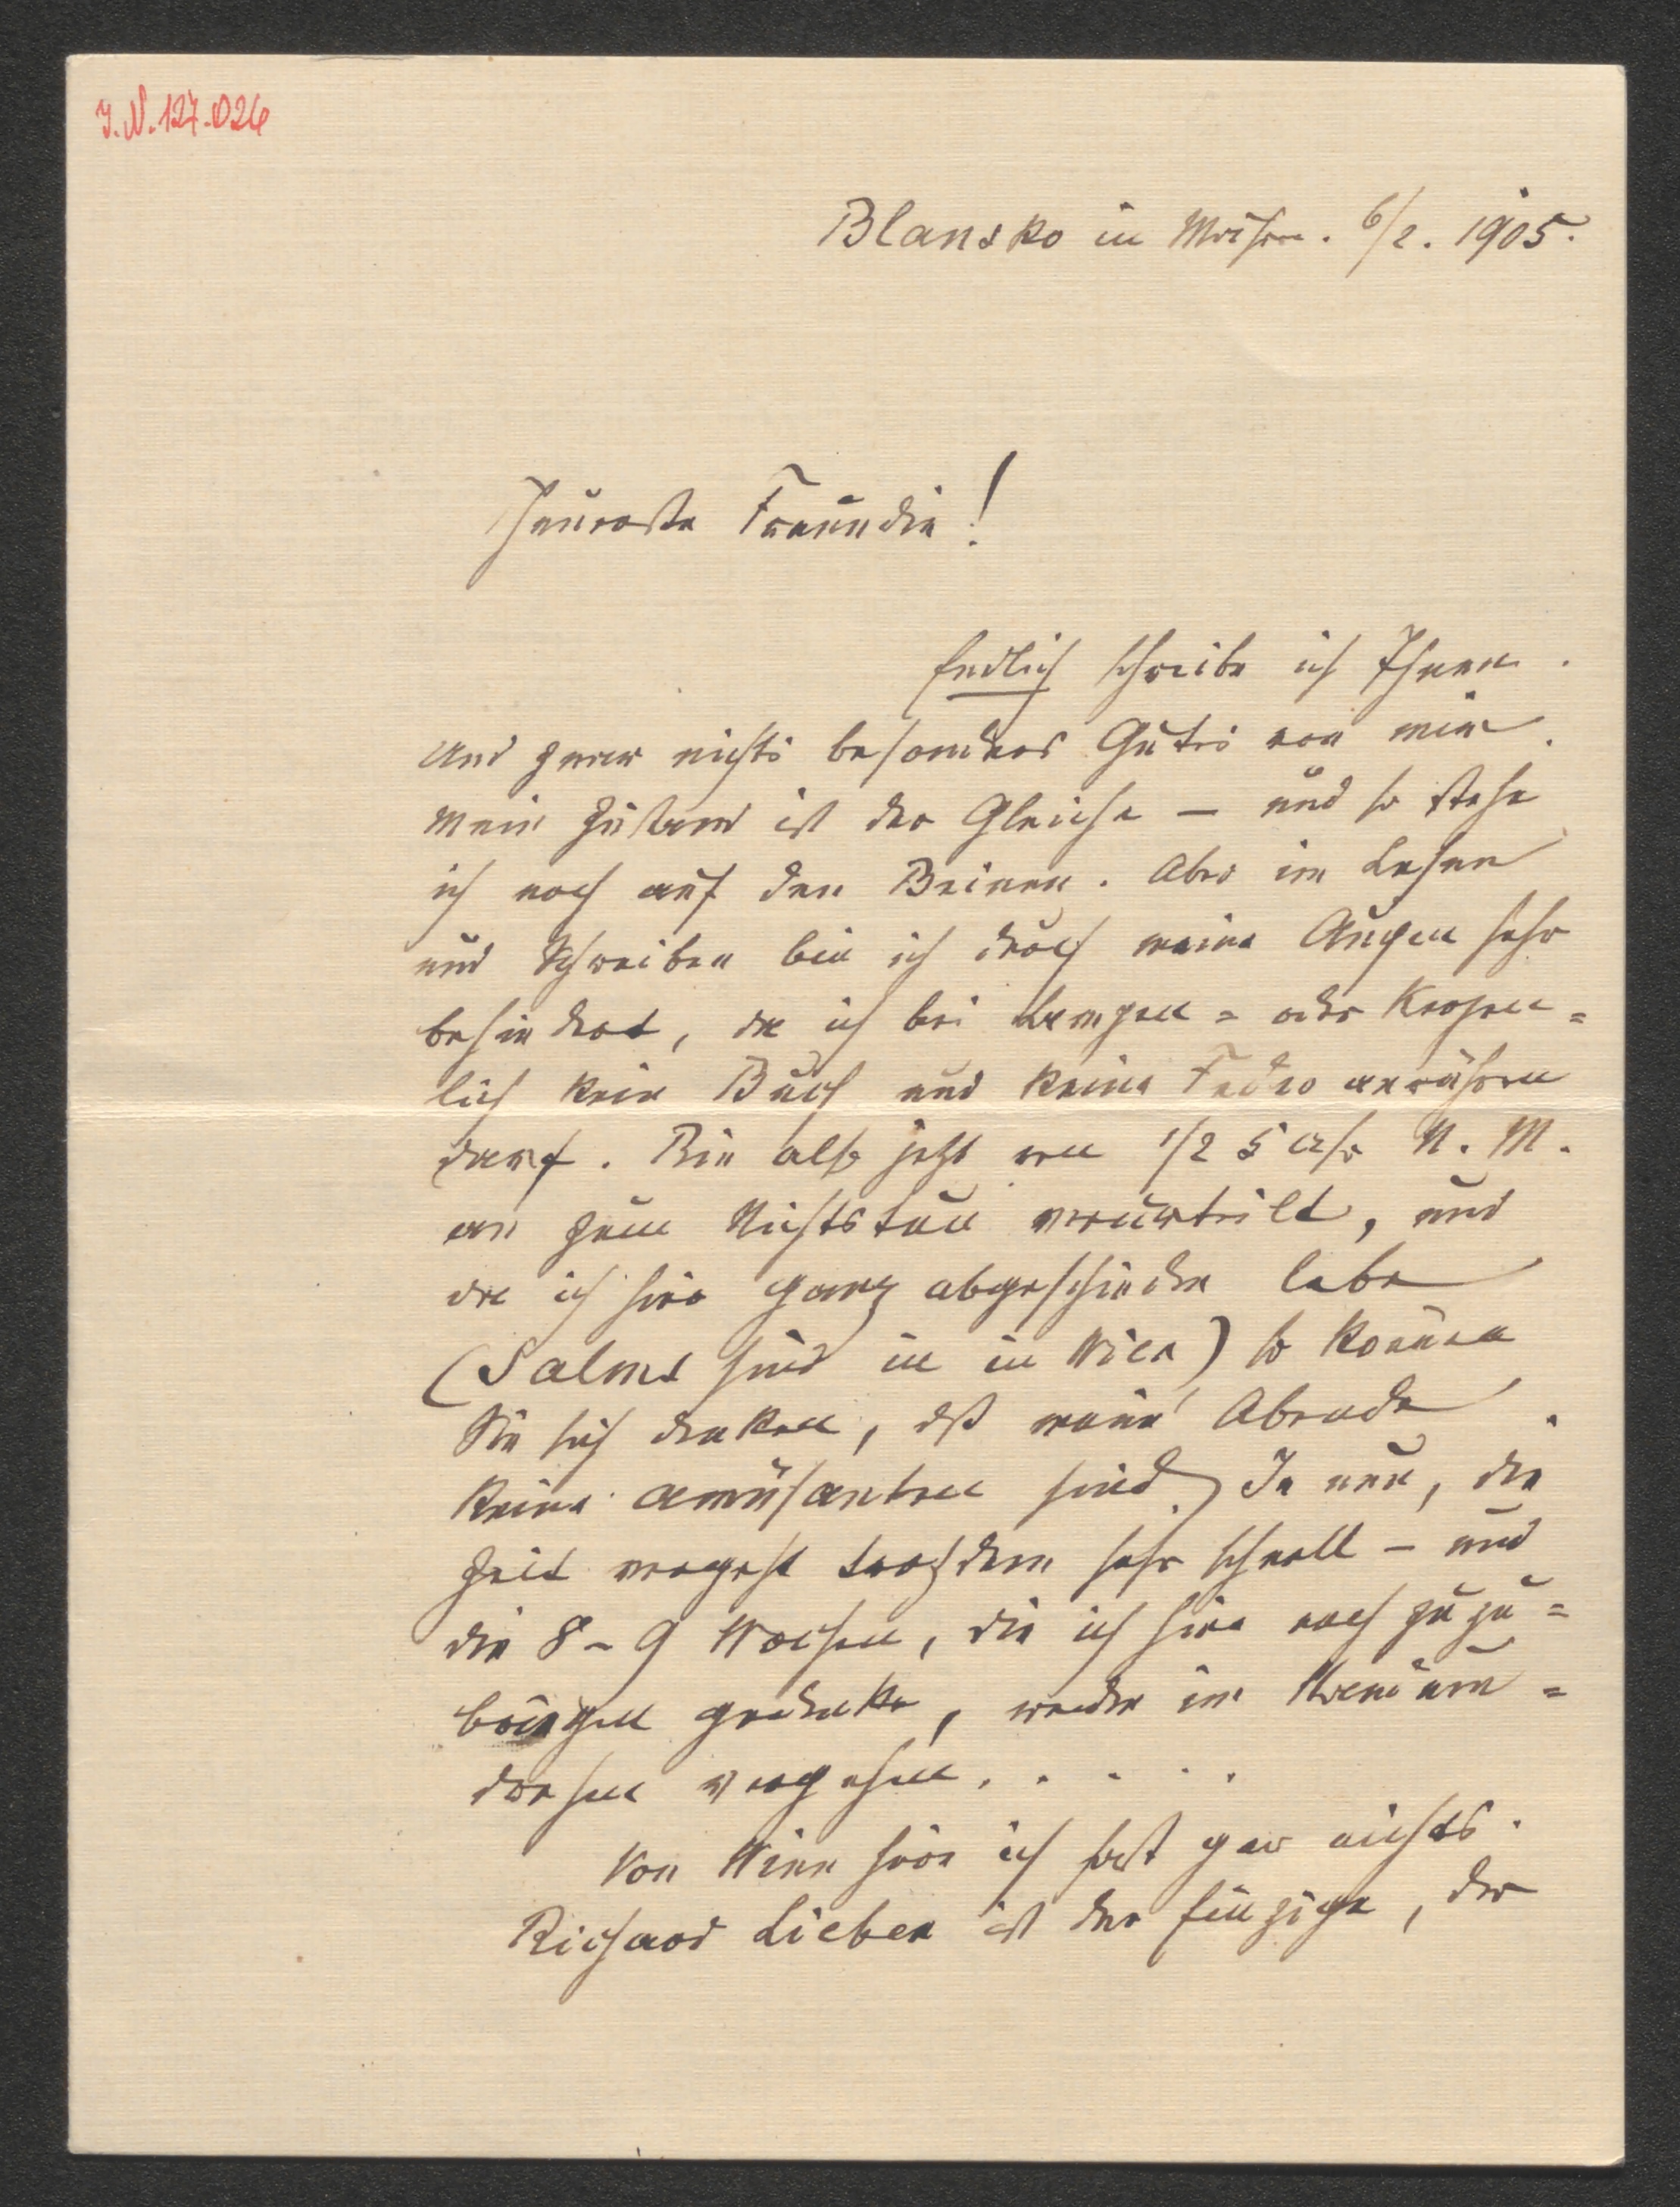 I.N. 127.026
Blansko in Mähren. 6/2. 1905.
Theuerste Freundin!
Endlich schreibe ich Ihnen.
Und zwar nichts besonders Gutes von mir.
Mein Zustand ist der Gleiche – und so stehe
ich noch auf den Beinen. Aber im Lesen
und Schreiben bin ich durch meine Augen sehr
behindert, da ich bei Lampen = oder Kerzen =
licht kein Buch und keine Feder anrühren
darf. Bin also jetzt von 1/2 5 Uhr N. M.
an zum Nichtstun verurteilt, und
da ich hier ganz abgeschieden lebe
(Salms sind in in Wien) so können
Sie sich denken, dß meine Abende
keine amüsanten sind. Ja nun, die
Zeit vergeht trotzdem sehr schnell – und
die 8 – 9 Wochen, die ich hier noch zuzu =
bringen gedenke, werden im Handum =
drehen vergehen. . . . .
Von Wien höre ich fast gar nichts.
Richard Lieben ist der Einzige, der